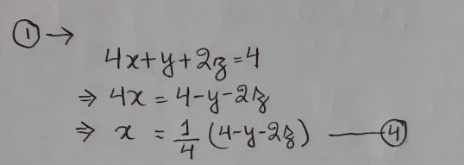 ① →
4x+y+2z=4
⇒ 4x = 4-y-2z
⇒ x = 1/4 (4-y-2z) —— ④